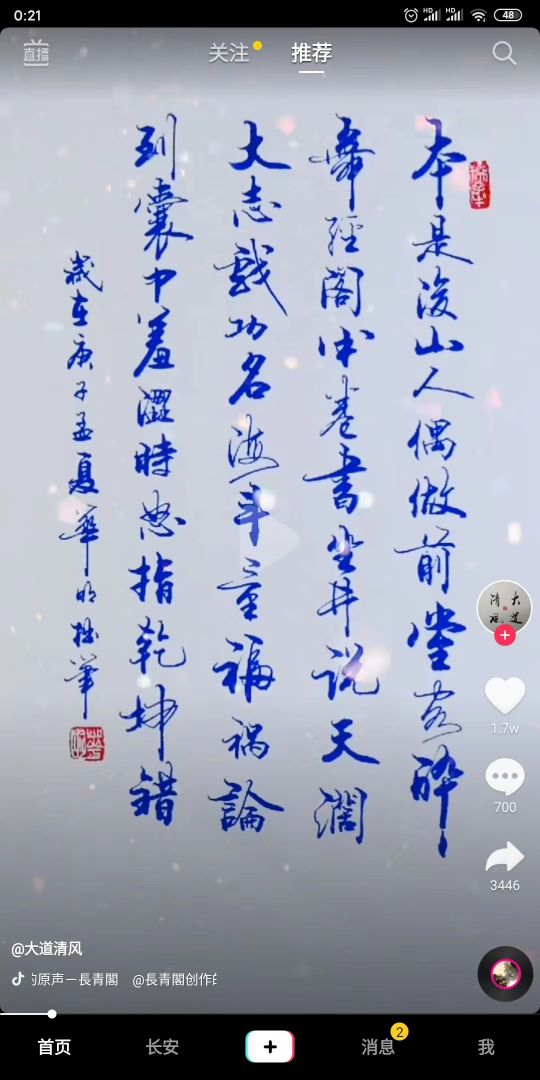 0:21
48
直播
关注
推荐
本是後山人偶做前堂客醉
舞經閣半卷書坐井説天濶
大志戲功名海斗量福禍論
到囊中羞澀時怒指乾坤錯
歲在庚子孟夏華明拙筆
大道
清风
1.7w
700
3446
@大道清风
的原声－長青閣 @長青閣创作的
首页
长安
消息
2
我